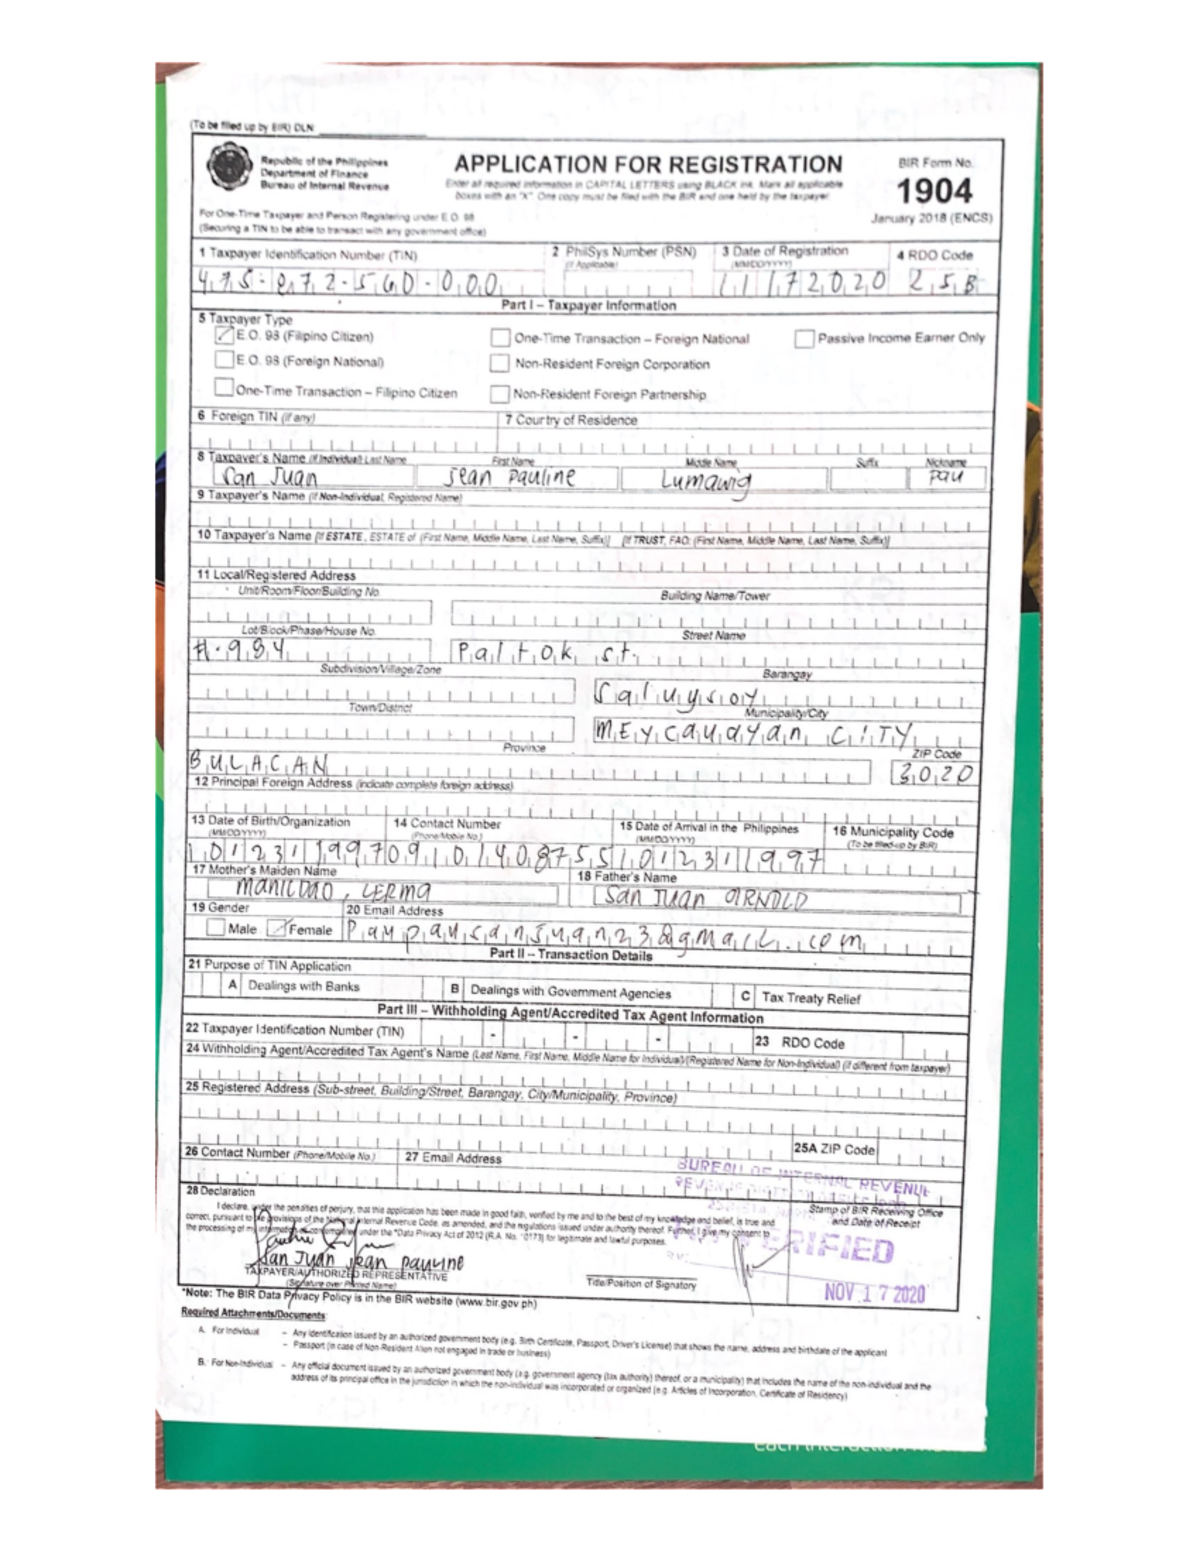 (To be filled up by BIR) DLN:
Republic of the Philippines
Department of Finance
Bureau of Internal Revenue
APPLICATION FOR REGISTRATION
Enter all required information in CAPITAL LETTERS using BLACK ink. Mark all applicable
boxes with an "X". One copy must be filed with the BIR and one held by the taxpayer.
BIR Form No.
1904
January 2018 (ENCS)
For One-Time Taxpayer and Person Registering under E.O. 98
(Securing a TIN to be able to transact with any government office)
1 Taxpayer Identification Number (TIN)
2 PhilSys Number (PSN)
(If Applicable)
3 Date of Registration
(MM/DD/YYYY)
4 RDO Code
475-872-560-000
11172020
25B
Part I – Taxpayer Information
5 Taxpayer Type
E.O. 98 (Filipino Citizen)
One-Time Transaction – Foreign National
Passive Income Earner Only
E.O. 98 (Foreign National)
Non-Resident Foreign Corporation
One-Time Transaction – Filipino Citizen
Non-Resident Foreign Partnership
6 Foreign TIN (if any)
7 Country of Residence
8 Taxpayer's Name (If Individual) Last Name
First Name
Middle Name
Suffix
Nickname
San Juan
Jean Pauline
Lumawig
Pau
9 Taxpayer's Name (If Non-Individual, Registered Name)
10 Taxpayer's Name [If ESTATE, ESTATE of (First Name, Middle Name, Last Name, Suffix)] [If TRUST, FAO: (First Name, Middle Name, Last Name, Suffix)]
11 Local/Registered Address
Unit/Room/Floor/Building No.
Building Name/Tower
Lot/Block/Phase/House No.
Street Name
#.984
Paltok st.
Subdivision/Village/Zone
Barangay
Saluysoy
Town/District
Municipality/City
MEYcauayan CITY
Province
ZIP Code
BULACAN
3020
12 Principal Foreign Address (indicate complete foreign address)
13 Date of Birth/Organization
(MM/DD/YYYY)
14 Contact Number
(Phone/Mobile No.)
15 Date of Arrival in the Philippines
(MM/DD/YYYY)
16 Municipality Code
(To be filled-up by BIR)
1012311997091014087551012311997
17 Mother's Maiden Name
18 Father's Name
MANICDAO, LERMA
San Juan ARNOLD
19 Gender
20 Email Address
Male
Female
Paupausanjuan23@gMaiL.com
Part II – Transaction Details
21 Purpose of TIN Application
A Dealings with Banks
B Dealings with Government Agencies
C Tax Treaty Relief
Part III – Withholding Agent/Accredited Tax Agent Information
22 Taxpayer Identification Number (TIN)
- - -
23 RDO Code
24 Withholding Agent/Accredited Tax Agent's Name (Last Name, First Name, Middle Name for Individual)/(Registered Name for Non-Individual) (if different from taxpayer)
25 Registered Address (Sub-street, Building/Street, Barangay, City/Municipality, Province)
25A ZIP Code
26 Contact Number (Phone/Mobile No.)
27 Email Address
BUREAU OF INTERNAL REVENUE
28 Declaration
I declare, under the penalties of perjury, that this application has been made in good faith, verified by me and to the best of my knowledge and belief, is true and
correct, pursuant to the provisions of the National Internal Revenue Code, as amended, and the regulations issued under authority thereof. Further, I give my consent to
the processing of my information as contemplated under the *Data Privacy Act of 2012 (R.A. No. 10173) for legitimate and lawful purposes.
Stamp of BIR Receiving Office
and Date of Receipt
VERIFIED
San Juan Jean Pauline
TAXPAYER/AUTHORIZED REPRESENTATIVE
(Signature over Printed Name)
Title/Position of Signatory
NOV 17 2020
*Note: The BIR Data Privacy Policy is in the BIR website (www.bir.gov.ph)
Required Attachments/Documents:
A. For Individual – Any identification issued by an authorized government body (e.g. Birth Certificate, Passport, Driver's License) that shows the name, address and birthdate of the applicant
– Passport (in case of Non Resident Alien not engaged in trade or business)
B. For Non-Individual – Any official document issued by an authorized government body (e.g. government agency (tax authority) thereof, or a municipality) that includes the name of the non-individual and the
address of its principal office in the jurisdiction in which the non-individual was incorporated or organized (e.g. Articles of Incorporation, Certificate of Residency)